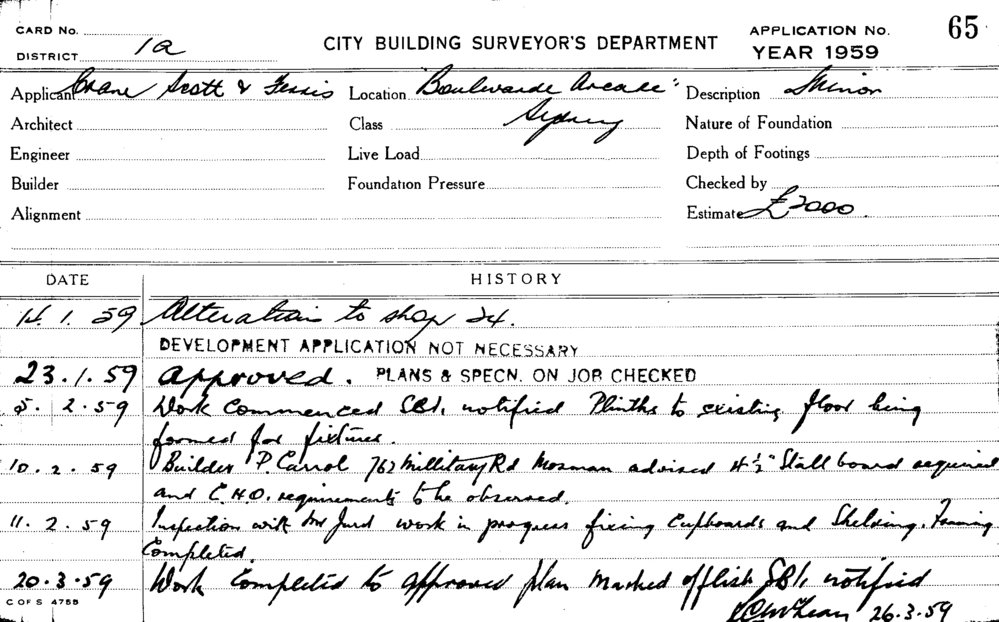 CARD No.
DISTRICT 1a
CITY BUILDING SURVEYOR'S DEPARTMENT
APPLICATION No. 65
YEAR 1959
Applicant Crane Scott & Ferris Location Boulevarde Arcade Description Minor
Architect Class Sydney Nature of Foundation
Engineer Live Load Depth of Footings
Builder Foundation Pressure Checked by
Alignment Estimate £2000.
DATE HISTORY
14. 1. 59 Alteration to shop 24.
DEVELOPMENT APPLICATION NOT NECESSARY
23.1.59 Approved. PLANS & SPECN. ON JOB CHECKED
5. 2. 59 Work Commenced SBI. notified Plinths to existing floor being
formed for fixtures.
10. 2. 59 Builder P. Carrol 762 Millitary Rd Mosman advised 4½" Stall board required
and C.H.O. requirements to be observed.
11. 2. 59 Inspection with Mr Jurd work in progress fixing Cupboards and Shelding. Framing
Completed.
20.3.59 Work Completed to approved plan marked off list SBI. notified
26.3.59
C OF S 475B